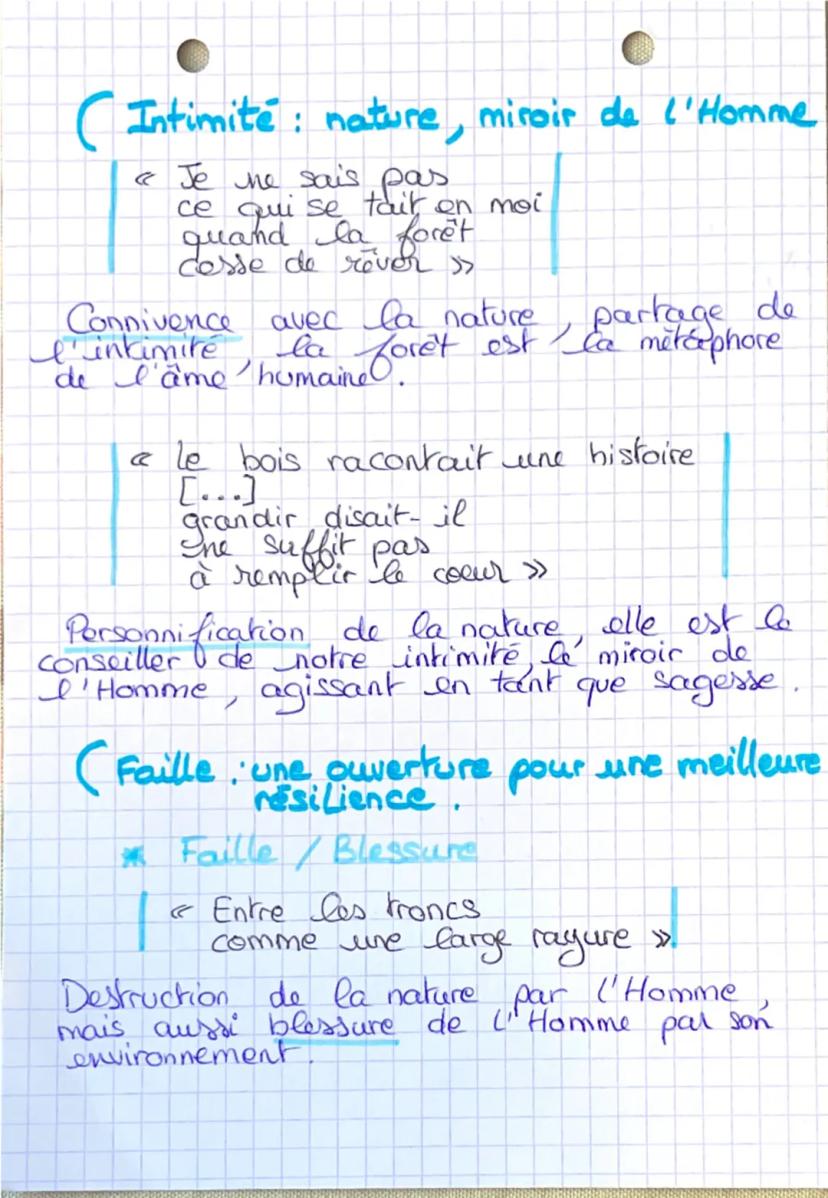 Intimité : nature, miroir de l'Homme
« Je ne sais pas
ce qui se tait en moi
quand la forêt
cesse de rêver »
Connivence avec la nature, partage de
l'intimité, la forêt est la métaphore
de l'âme humaine.
« le bois racontait une histoire
[...]
grandir disait-il
ne suffit pas
à remplir le coeur »
Personnification de la nature, elle est le
conseiller de notre intimité, le miroir de
l'Homme, agissant en tant que sagesse.
Faille : une ouverture pour une meilleure
résilience.
* Faille / Blessure
« Entre les troncs
comme une large rayure »
Destruction de la nature par l'Homme,
mais aussi blessure de l'Homme par son
environnement.